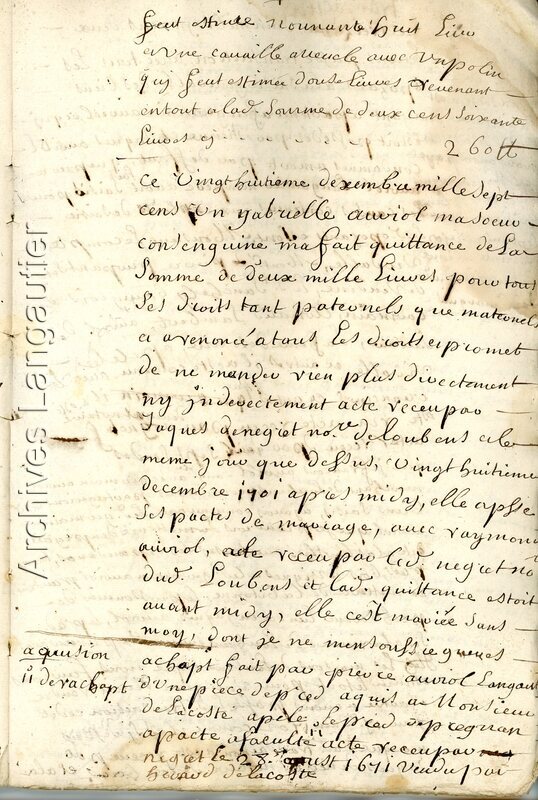 feut estimee nonnante huit Livres
et une cavaille aveucle avec un polin
quy feut estimee douse Livres revenant
entout a lad. somme de deux cens soixante
Livres cy 260 tt
ce vingt huitieme dexembre mille sept
cens un gabrielle auriol ma soeur
consenguine ma fait quittance de la
somme de deux mille Livres pour tous
ses droits tant paternels que maternels
a renoncé a tous les droits et promet
de ne mander rien plus directement
ny indirectement acte receu par
Jaques de negret no.re de loubens et le
meme jour que dessus, vingt huitieme
decembre 1701 apres midy, elle a passe
ses pactes de mariage, avec raymond
auriol, acte receu par led. negret no
dud. Loubens et lad. quittance estoit
avant midy, elle cest mariée sans
moy, dont je ne men soussie gueres
achapt fait par pierre auriol Langau
dune piece de pred aquis a Monsieur
de Lacoste apele le pred de pregnan
a pacte a faculte acte receu par
negret le 28 aust 1671 vendu par
de lacoste
aquision
11 de rachapt
Archives Langautier